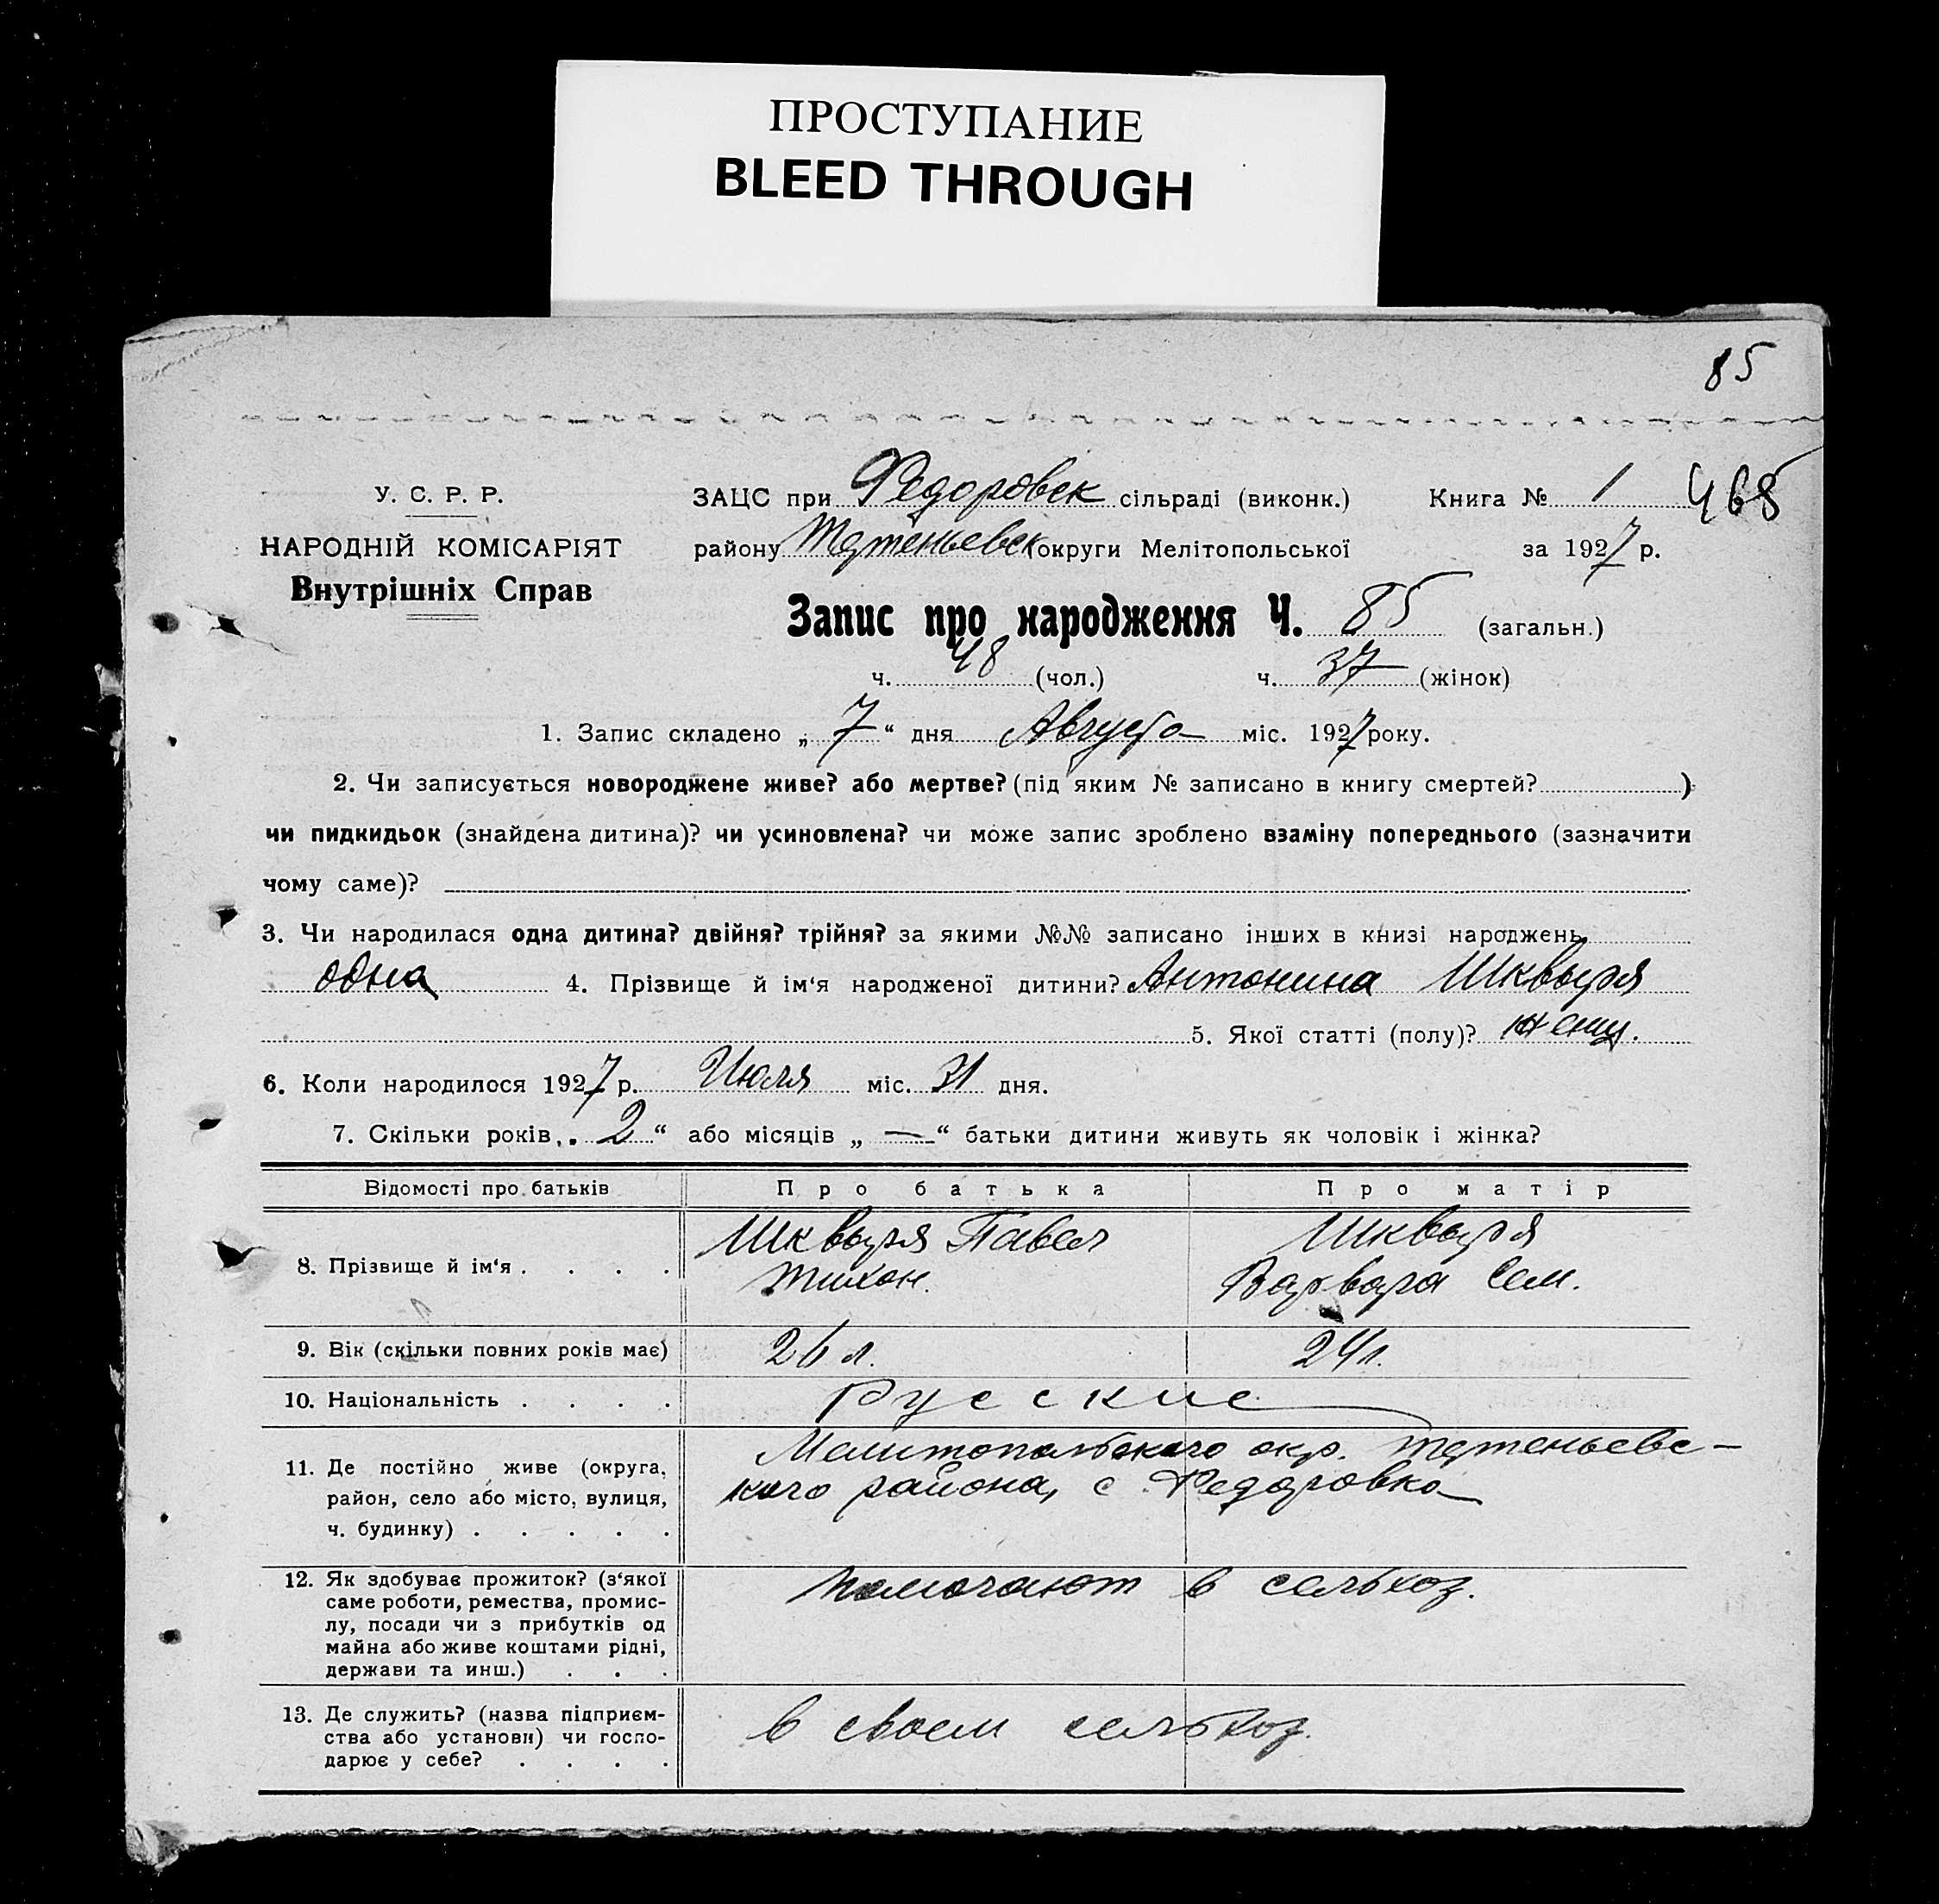 ПРОСТУПАНИЕ
BLEED THROUGH
85
У. С. Р. Р.
НАРОДНІЙ КОМІСАРІЯТ
Внутрішніх Справ
ЗАЦС при Федоровск сільраді (виконк.) Книга № 1 468
району Тутеньевск округи Мелітопольської за 1927 р.
Запис про народження Ч. 85 (загальн.)
ч. 48 (чол.) ч. 37 (жінок)
1. Запис складено „ 7 “ дня Августа міс. 1927 року.
2. Чи записується новороджене живе? або мертве? (під яким № записано в книгу смертей? )
чи пидкидьок (знайдена дитина)? чи усиновлена? чи може запис зроблено взаміну попереднього (зазначити
чому саме)?
3. Чи народилася одна дитина? двійня? трійня? за якими №№ записано інших в книзі народжень
одна 4. Прізвище й ім‘я народженої дитини? Антонина Шквыря
5. Якої статті (полу)? женщ.
6. Коли народилося 1927 р. Июля міс. 31 дня.
7. Скільки років „ 2 “ або місяців „ — “ батьки дитини живуть як чоловік і жінка?
Відомості про батьків Про батька Про матір
8. Прізвище й ім‘я . . . . Шквыря Павел Шквыря
Тихон. Варвара Сем.
9. Вік (скільки повних років має) 26 л. 24 л.
10. Національність . . . . Русские
11. Де постійно живе (округа, Мелитопольского окр. Тутеньевс-
район, село або місто, вулиця, кого района, с Федоровка
ч. будинку) . . . . .
12. Як здобуває прожиток? (з‘якої помогают в сельхоз.
саме роботи, ремества, промис-
лу, посади чи з прибутків од
майна або живе коштами рідні,
держави та инш.) . . .
13. Де служить? (назва підприєм- в своем сельхоз.
ства або установи) чи госпо-
дарює у себе? . . . .